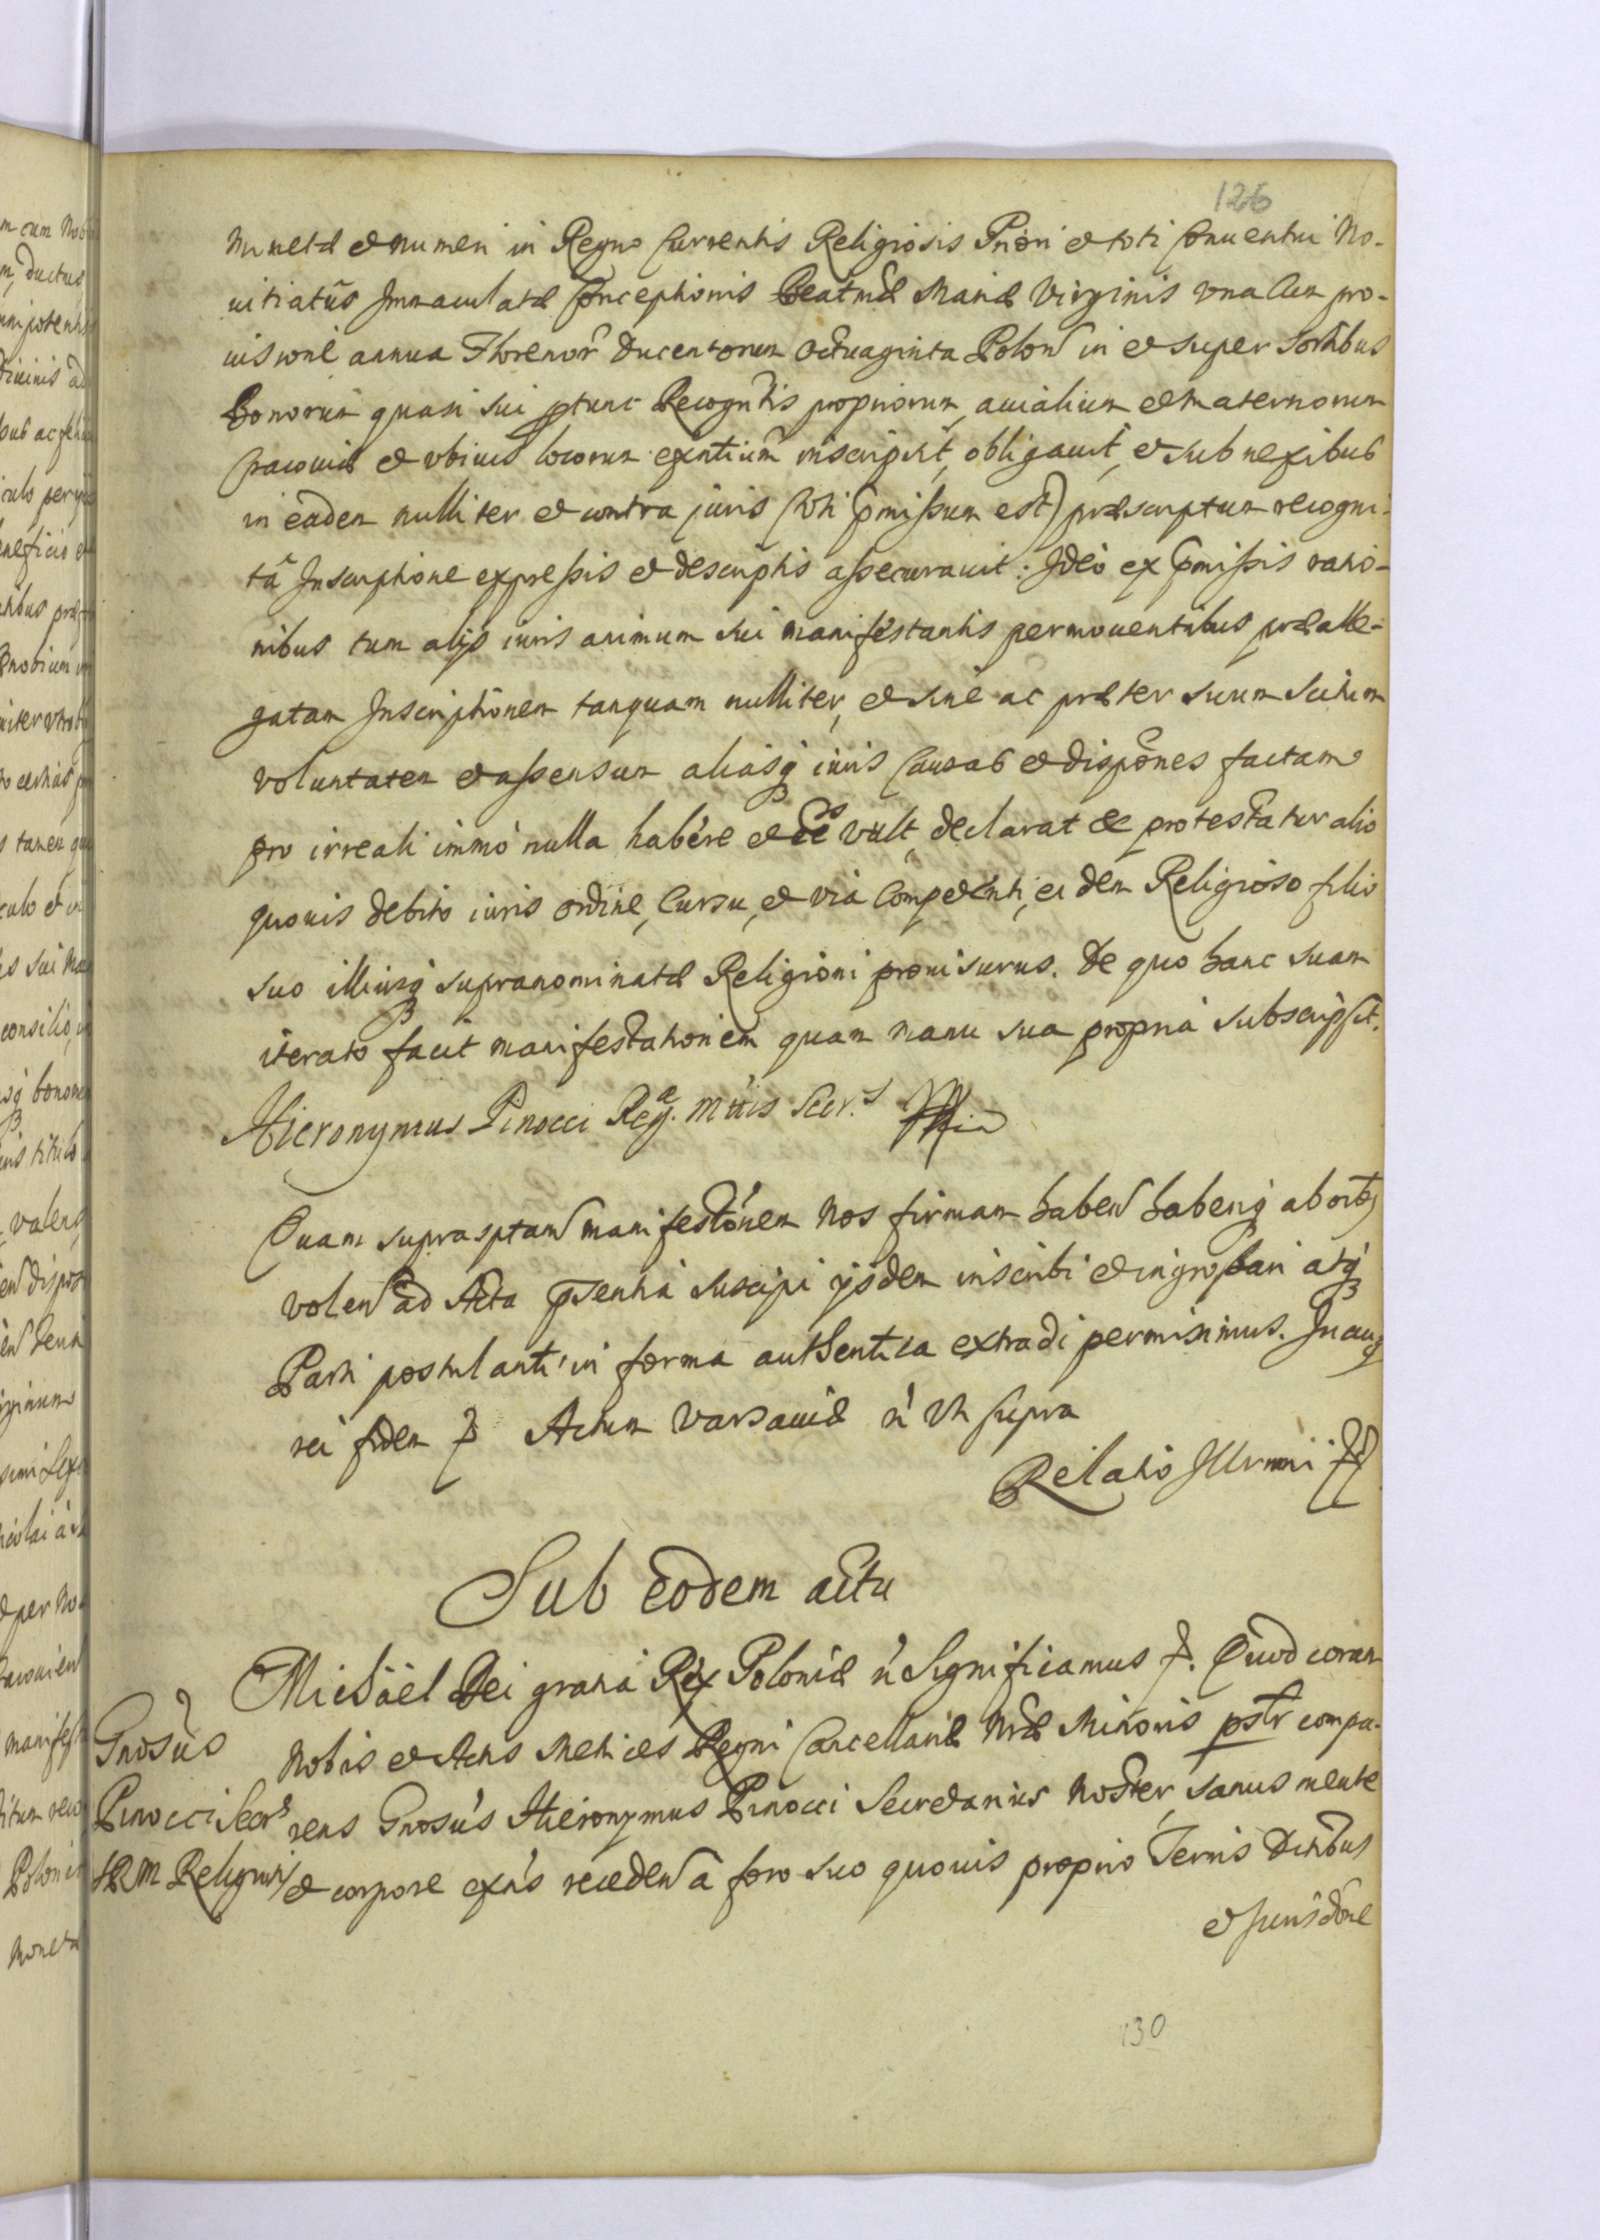 126
Monetæ et numeri in Regno Currentis Religiosis Priori et toti Conuentui No-
uitiatûs Immaculatæ Conceptionis Beatmæ Mariæ Virginis vna Cum pro-
uisione annua Florenor̃ Ducentorum Octuaginta Polon in et super Sortibus
Bonorum quasi sui ptunc Recogntis propriorum, auialium et maternorum
Cracouiæ et vbiuis locorum exñtium inscripsit, obligauit, et sub nexibus
in eadem nulliter et contra juris (Vti p̃missum est) præscriptum recogni-
tâ Inscriptione expressis et descriptis assecurauit: Ideò ex p̃missis ratio-
nibus tum alijs iuris animum sui manifestantis permouentibus præalle-
gatam Inscriptionem tanquam nulliter, et sine ac præter suum Scitum
voluntatem et assensum aliasq iuris Causas et dispõnes factam
pro irreali immò nulla habére et vult, declarat et protestatur alio
quouis debito iuris ordine, Cursu, et viâ Competenti, eidem Religioso filio
suo illiusq supranominatæ Religioni prouisurus. De quo hanc suam
iterato facit manifestationem quam manu sua propriâ subscripsit.
Hieronymus Pinocci Reg. Mttis Secr.s
Quam suprasptam manifestõnem Nos firmam haben haberiq ab oĩbq
volen ad Acta p̃sentia suscipi ijsdem inscribi et ingrossari atq
Parti postulanti in forma authentica extradi permisimus. In cuiq
rei fidem Actum Varsauiæ ñ Vti supra
Relatio Illrmi
Sub eodem actu
Michäel Dei gratia Rex Poloniæ ñ Significamus. Quod coram
Gnosũs
Nobis et Actis Metrices Regni Cancellariæ Nræ Minoris psĩr compa-
Pinocci Secrs
rens Gnosũs Hieronymus Pinocci Secretarius Noster, sanus mente
SRM Religioni
et corpore exñs receden à foro suo quouis proprio Terris Dictibus
et Jurisdõne
130